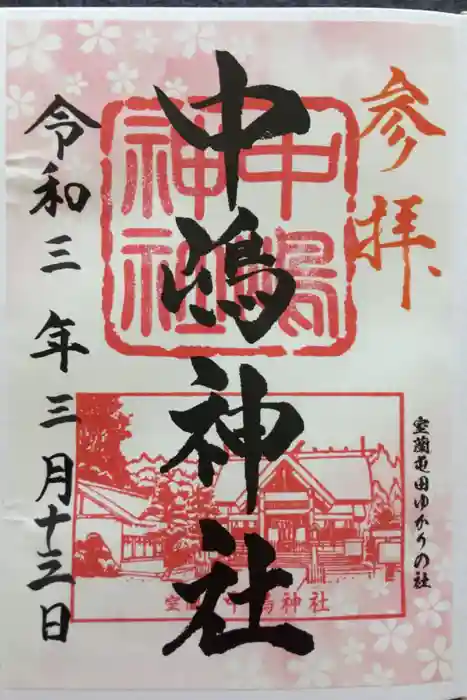 参拝、
中嶋神社
中嶋神社
室蘭屯田ゆかりの社
室蘭 中嶋神社
令和三年三月十三日